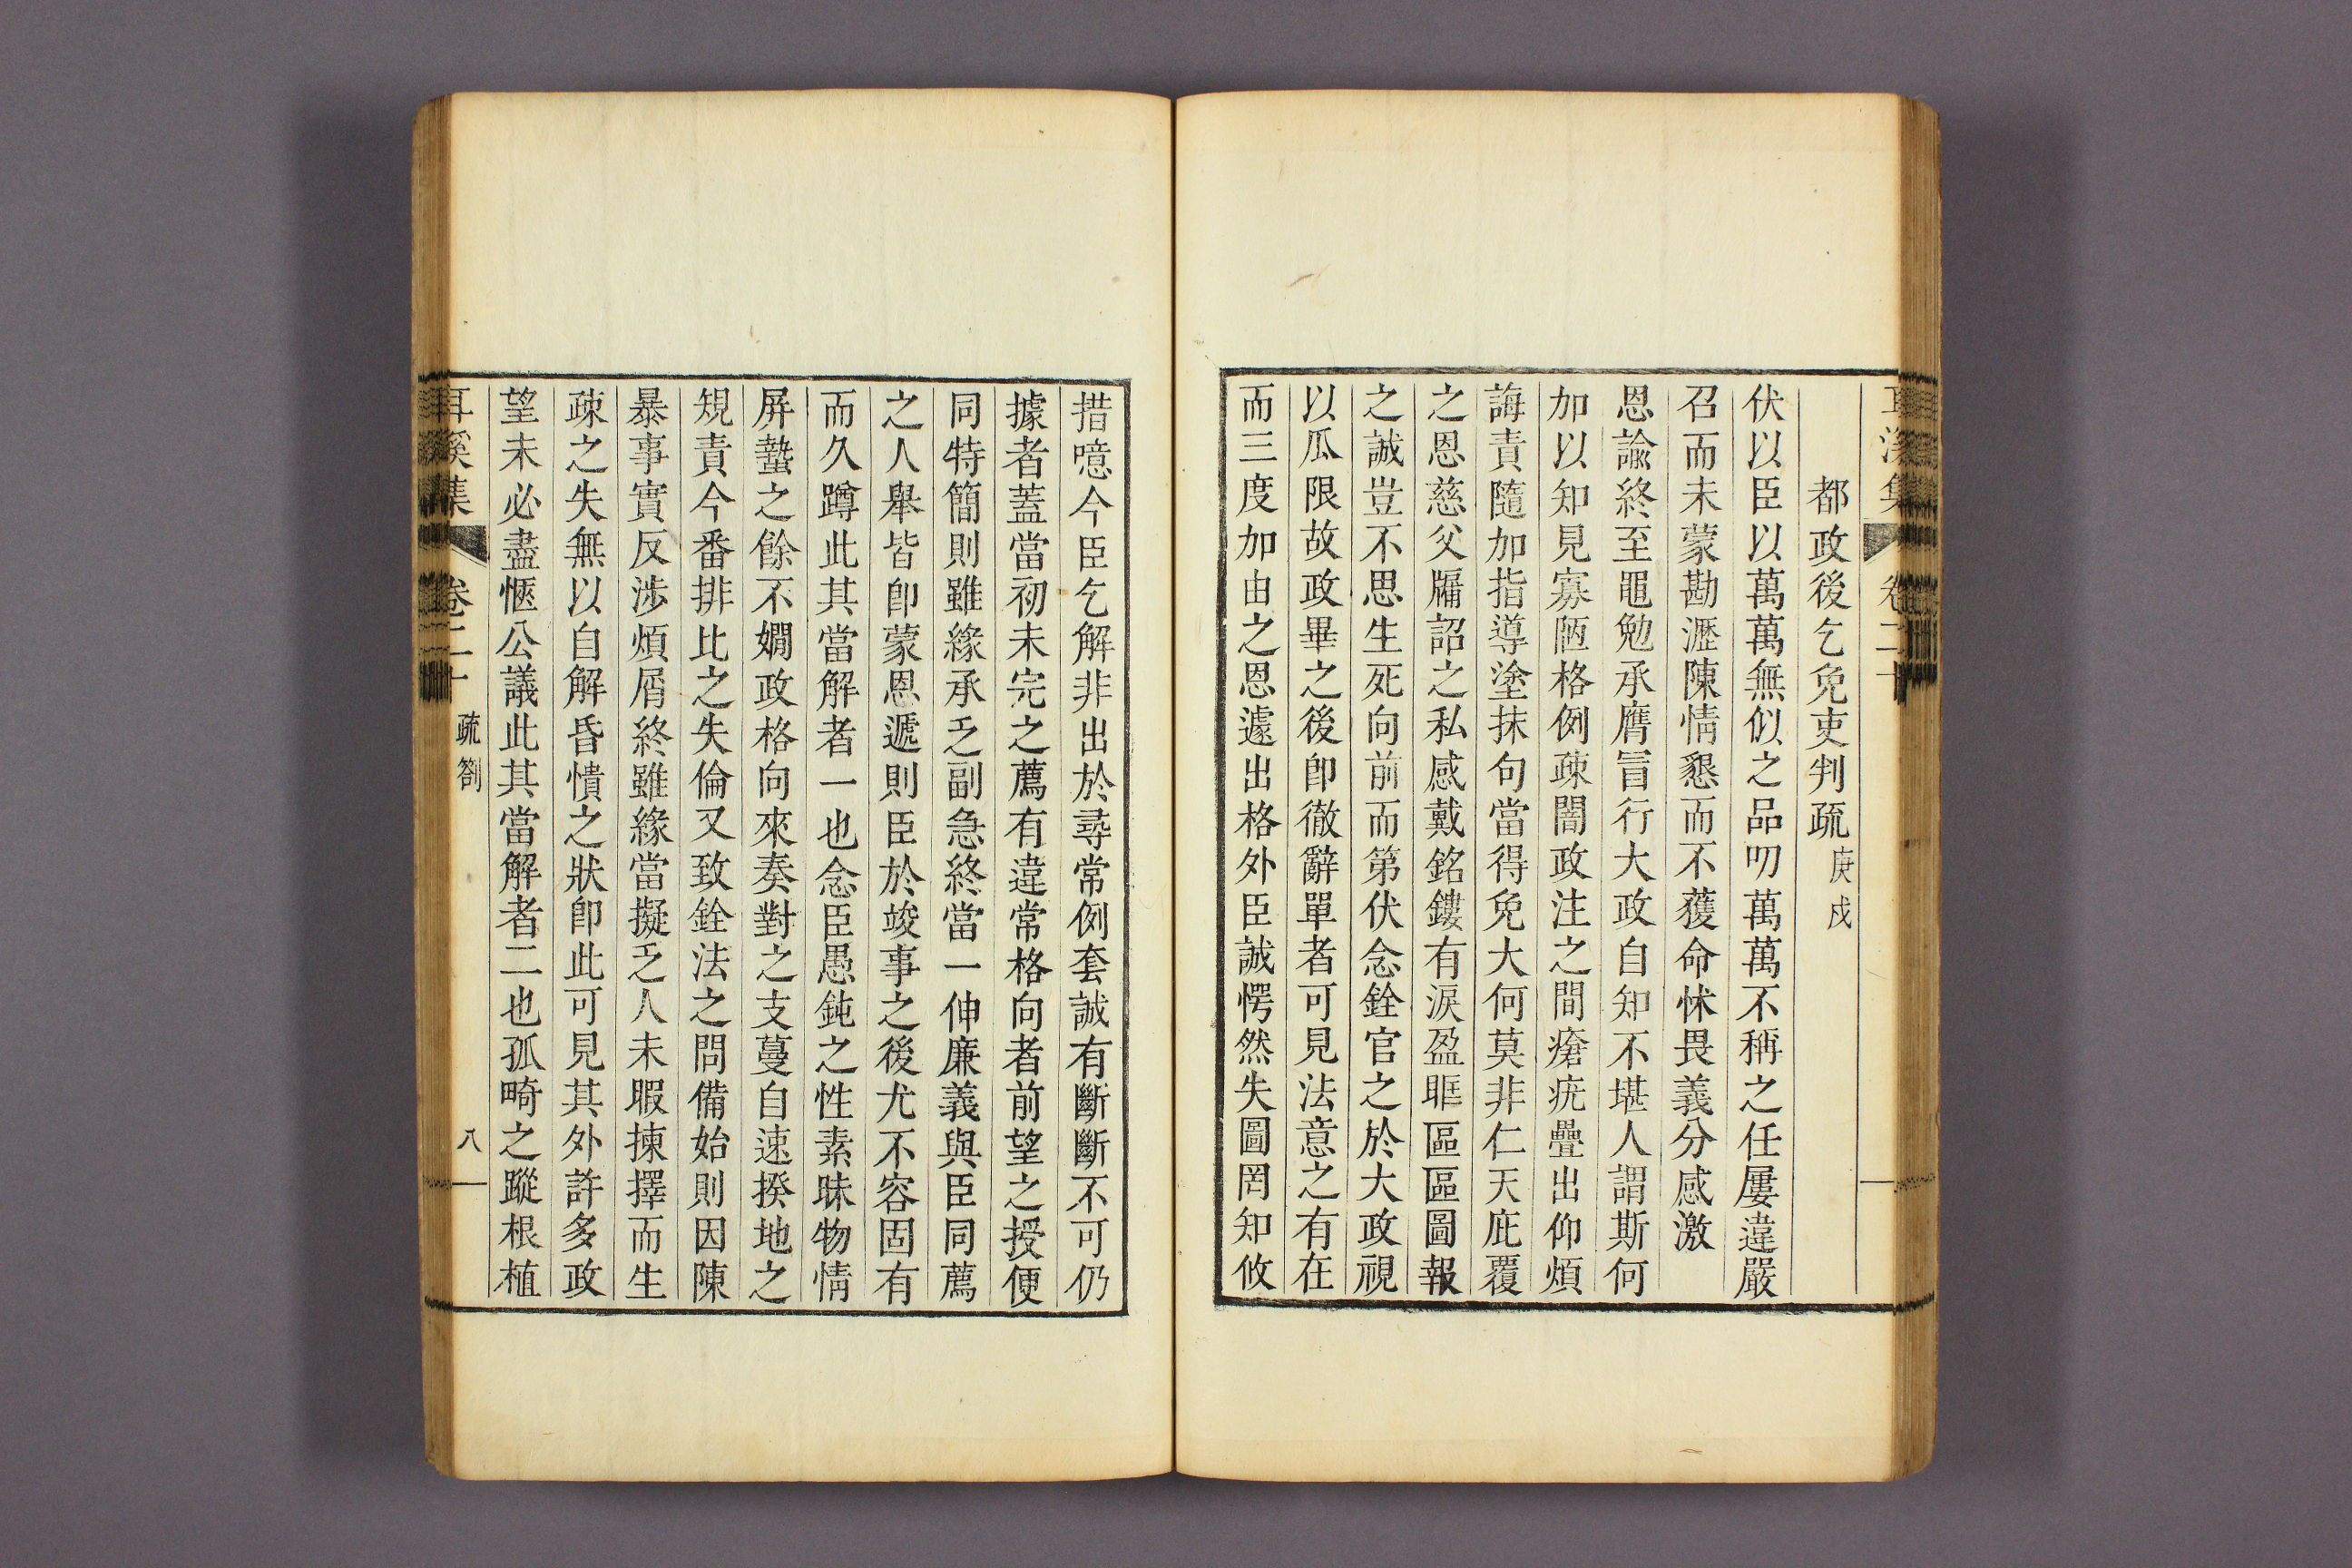 耳溪集 卷二十
都政後乞免吏判疏 庚戌
伏以臣以萬萬無似之品叨萬萬不稱之任屢違嚴
召而未蒙勘瀝陳情懇而不獲命怵畏義分感激
恩諭終至黽勉承膺冒行大政自知不堪人謂斯何
加以知見寡陋格例疎闇政注之間瘡疣疊出仰煩
誨責隨加指導塗抹句當得免大何莫非仁天庇覆
之恩慈父牖詔之私感戴銘鏤有淚盈眶區區圖報
之誠豈不思生死向前而第伏念銓官之於大政視
以瓜限故政畢之後卽徹辭單者可見法意之有在
而三度加由之恩遽出格外臣誠愕然失圖罔知攸
措噫今臣乞解非出於尋常例套誠有斷斷不可仍
據者蓋當初未完之薦有違常格向者前望之授便
同特簡則雖緣承乏副急終當一伸廉義與臣同薦
之人擧皆卽蒙恩遞則臣於竣事之後尤不容固有
而久蹲此其當解者一也念臣愚鈍之性素昧物情
屏蟄之餘不嫺政格向來奏對之支蔓自速揆地之
規責今番排比之失倫又致銓法之問備始則因陳
暴事實反涉煩屑終雖緣當擬乏人未暇揀擇而生
疎之失無以自解昏憒之狀卽此可見其外許多政
望未必盡愜公議此其當解者二也孤畸之蹤根植
耳溪集 卷二十 疏劄 八